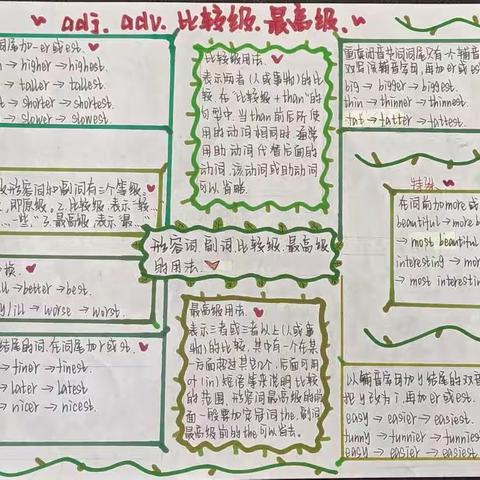 adj. adv. 比较级. 最高级.
词尾加-er或est.
→ higher → highest.
→ taller → tallest.
→ shorter → shortest
→ slower → slowest.
形容词和副词有三个等级.
即原级。2.比较级.表示"较
一些"3.最高级.表示"最
→ better → best.
ill → worse → worst.
结尾的词.在词尾加r或st.
→ finer → finest.
→ later → latest
→ nicer → nicest.
比较级用法.
表示两者(人或事物)的比
较.在"比较级+than"的
句型中.当than前后所使
用的动词相同时.通常
用助动词代替后面的
动词.该动词或助动词
可以省略.
形容词.副词.比较级.最高级
的用法.
最高级用法.
表示三者或三者以上(人或事
物)的比较.其中有一个在某
一方面超过其它几个.后面可用
of (in)短语等来说明比较
的范围.形容词最高级的前
面一般要加定冠词the.副词
最高级前的the可以省去.
重读闭音节词词尾只有一个辅音
双写该辅音字母.再加er或es
big → bigger → biggest.
thin → thinner → thinnest.
fat → fatter → fattest.
在词前加more或
beautiful → more b
→ most beautiful
interesting → mor
→ most interestin
以辅音字母加y结尾的双音
把y改为i.再加er或est.
easy → easier → easiest.
funny → funnier → funnies
easy → easier → easiest